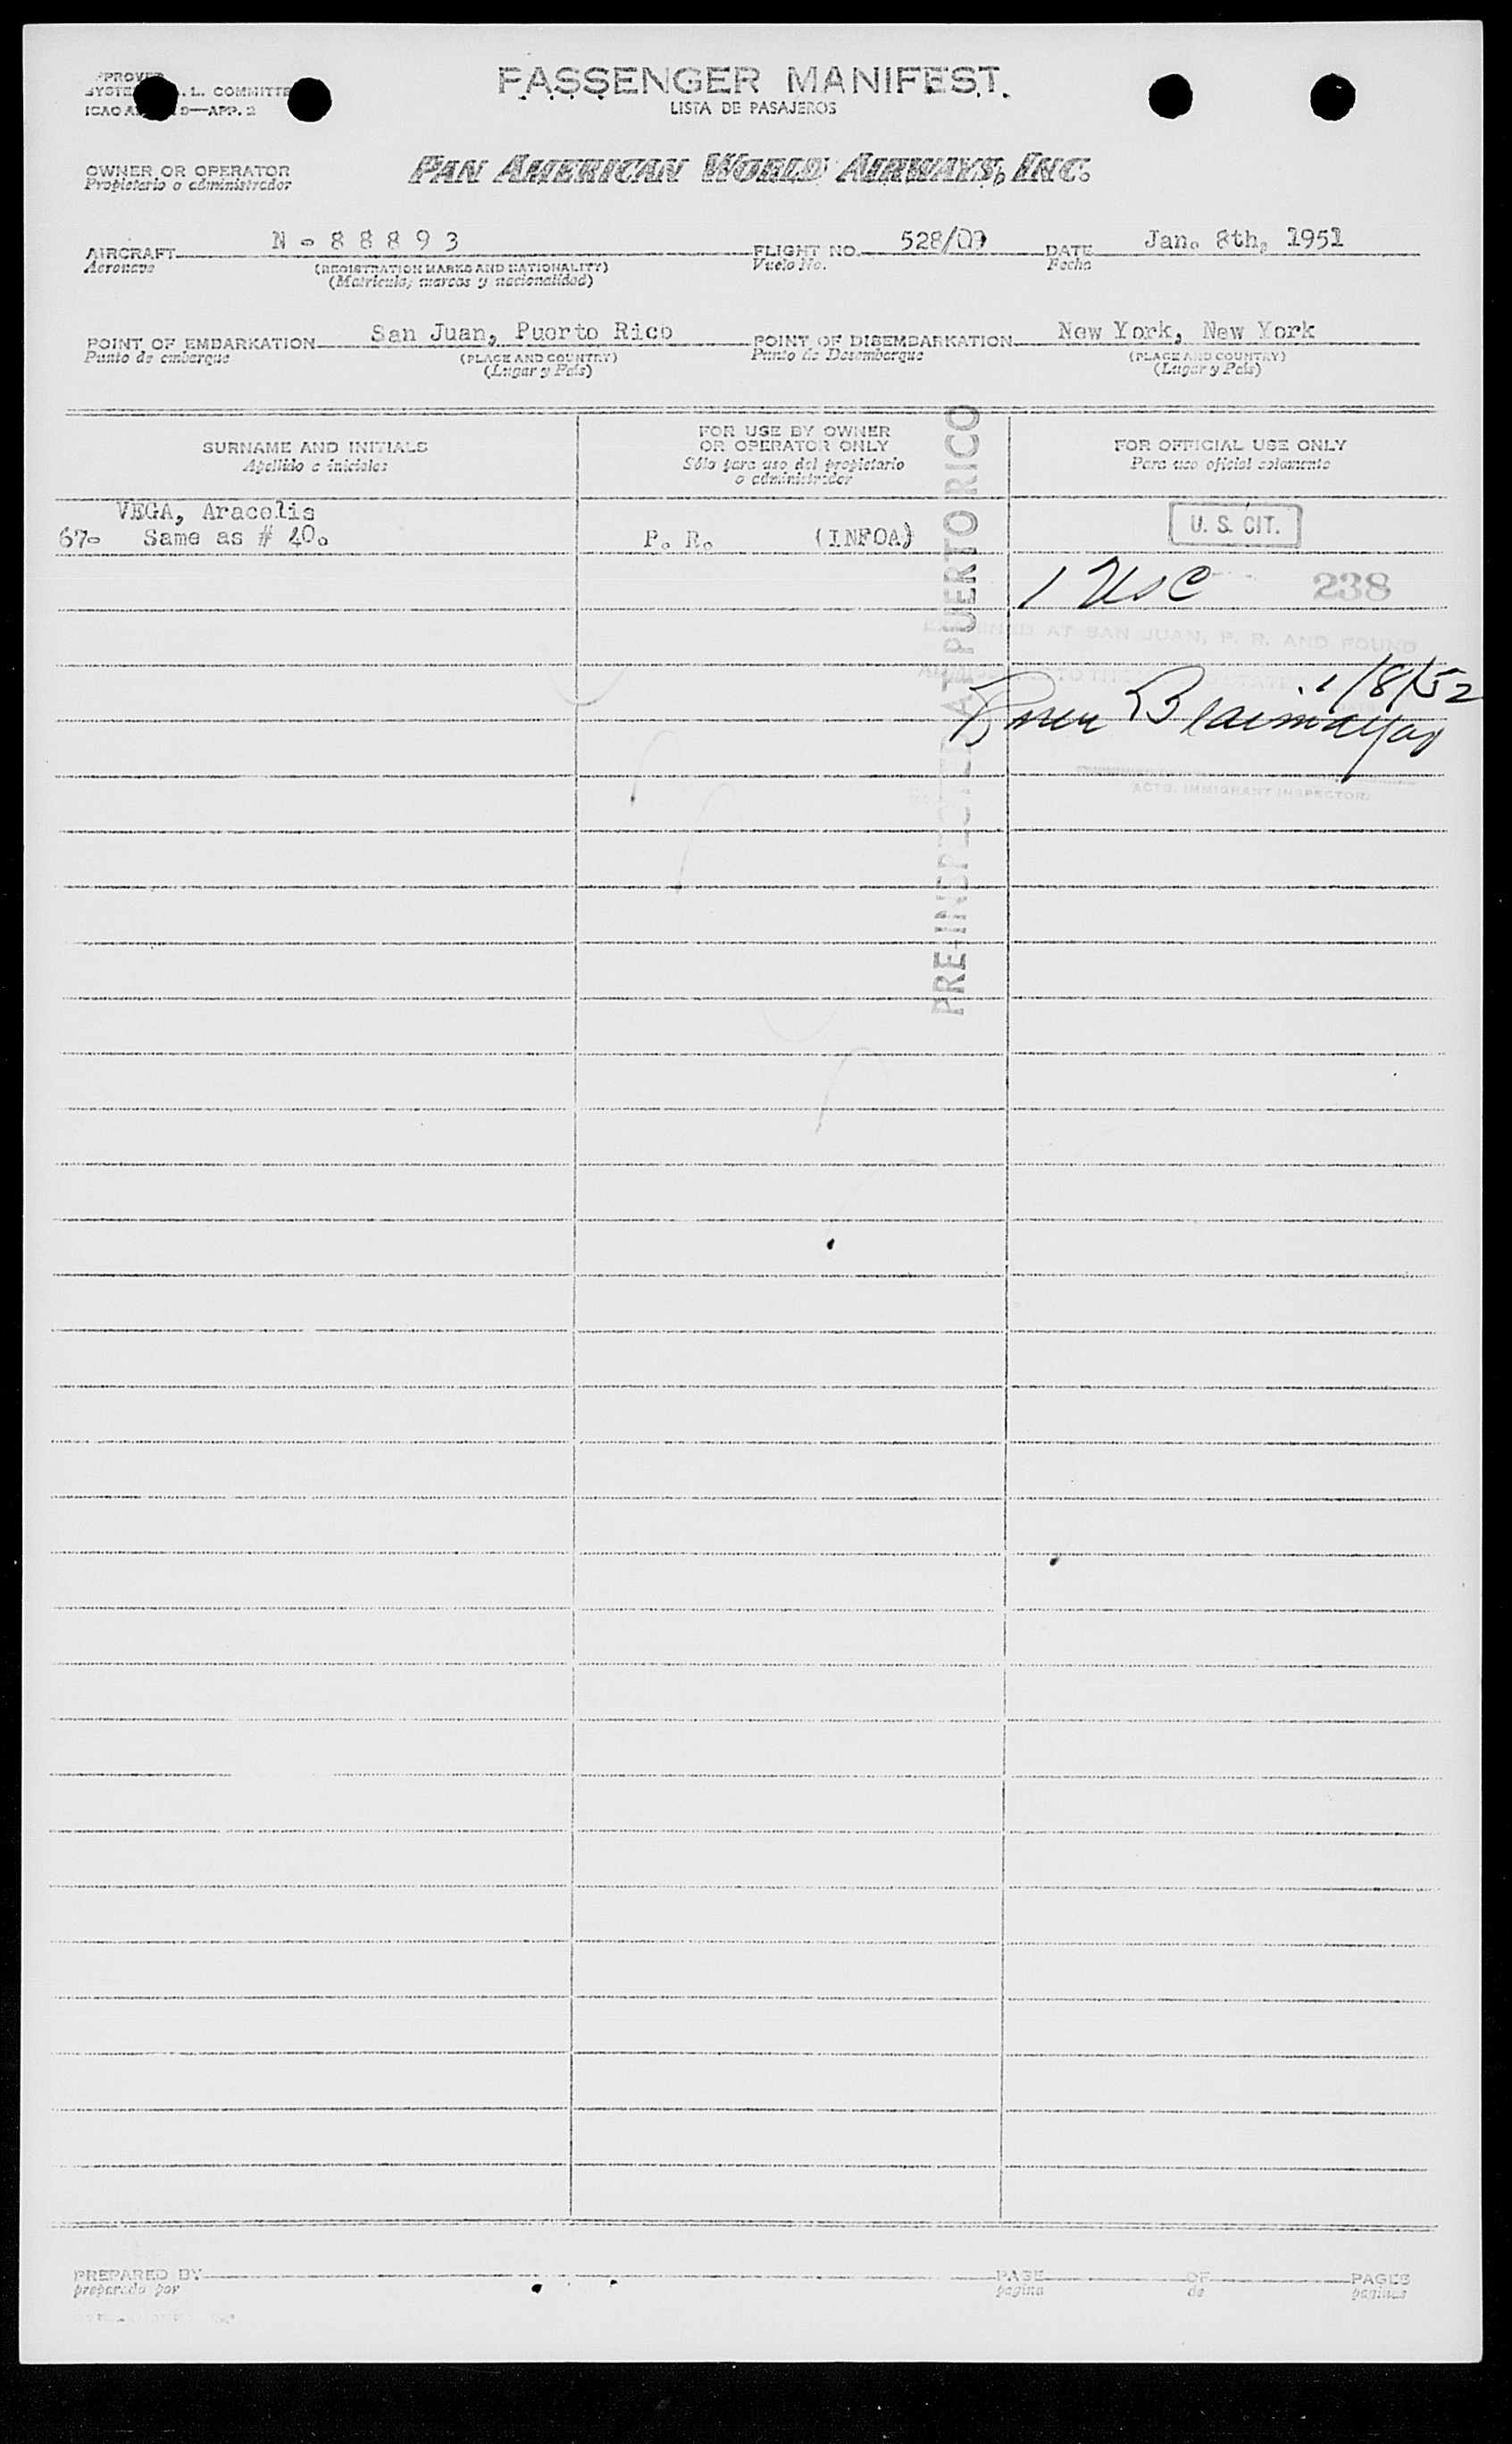 PASSENGER MANIFEST
LISTA DE PASAJEROS
OWNER OR OPERATOR
Propietario o administrador
PAN AMERICAN WORLD AIRWAYS, INC.
AIRCRAFT N - 8 8 8 9 3 FLIGHT NO. 528/09 DATE Jan. 8th, 1951
Aeronave (REGISTRATION MARKS AND NATIONALITY) Vuelo No. Fecha
(Matricula, marcas y nacionalidad)
POINT OF EMBARKATION San Juan, Puerto Rico POINT OF DISEMBARKATION New York, New York
Punto de embarque (PLACE AND COUNTRY) Punto de Desembarque (PLACE AND COUNTRY)
(Lugar y País) (Lugar y País)
SURNAME AND INITIALS FOR USE BY OWNER OR OPERATOR ONLY FOR OFFICIAL USE ONLY
Apellido e iniciales Sólo para uso del propietario o administrador Para uso oficial solamente
VEGA, Aracelis U. S. CIT.
67- Same as # 40. P. R. (INFOA)
1 USC 238
EXAMINED AT SAN JUAN, P. R. AND FOUND
1/8/52
ACTG. IMMIGRANT INSPECTOR
PRE-INSPECTED AT PUERTO RICO
PREPARED BY PAGE OF PAGES
preparado por pagina de paginas